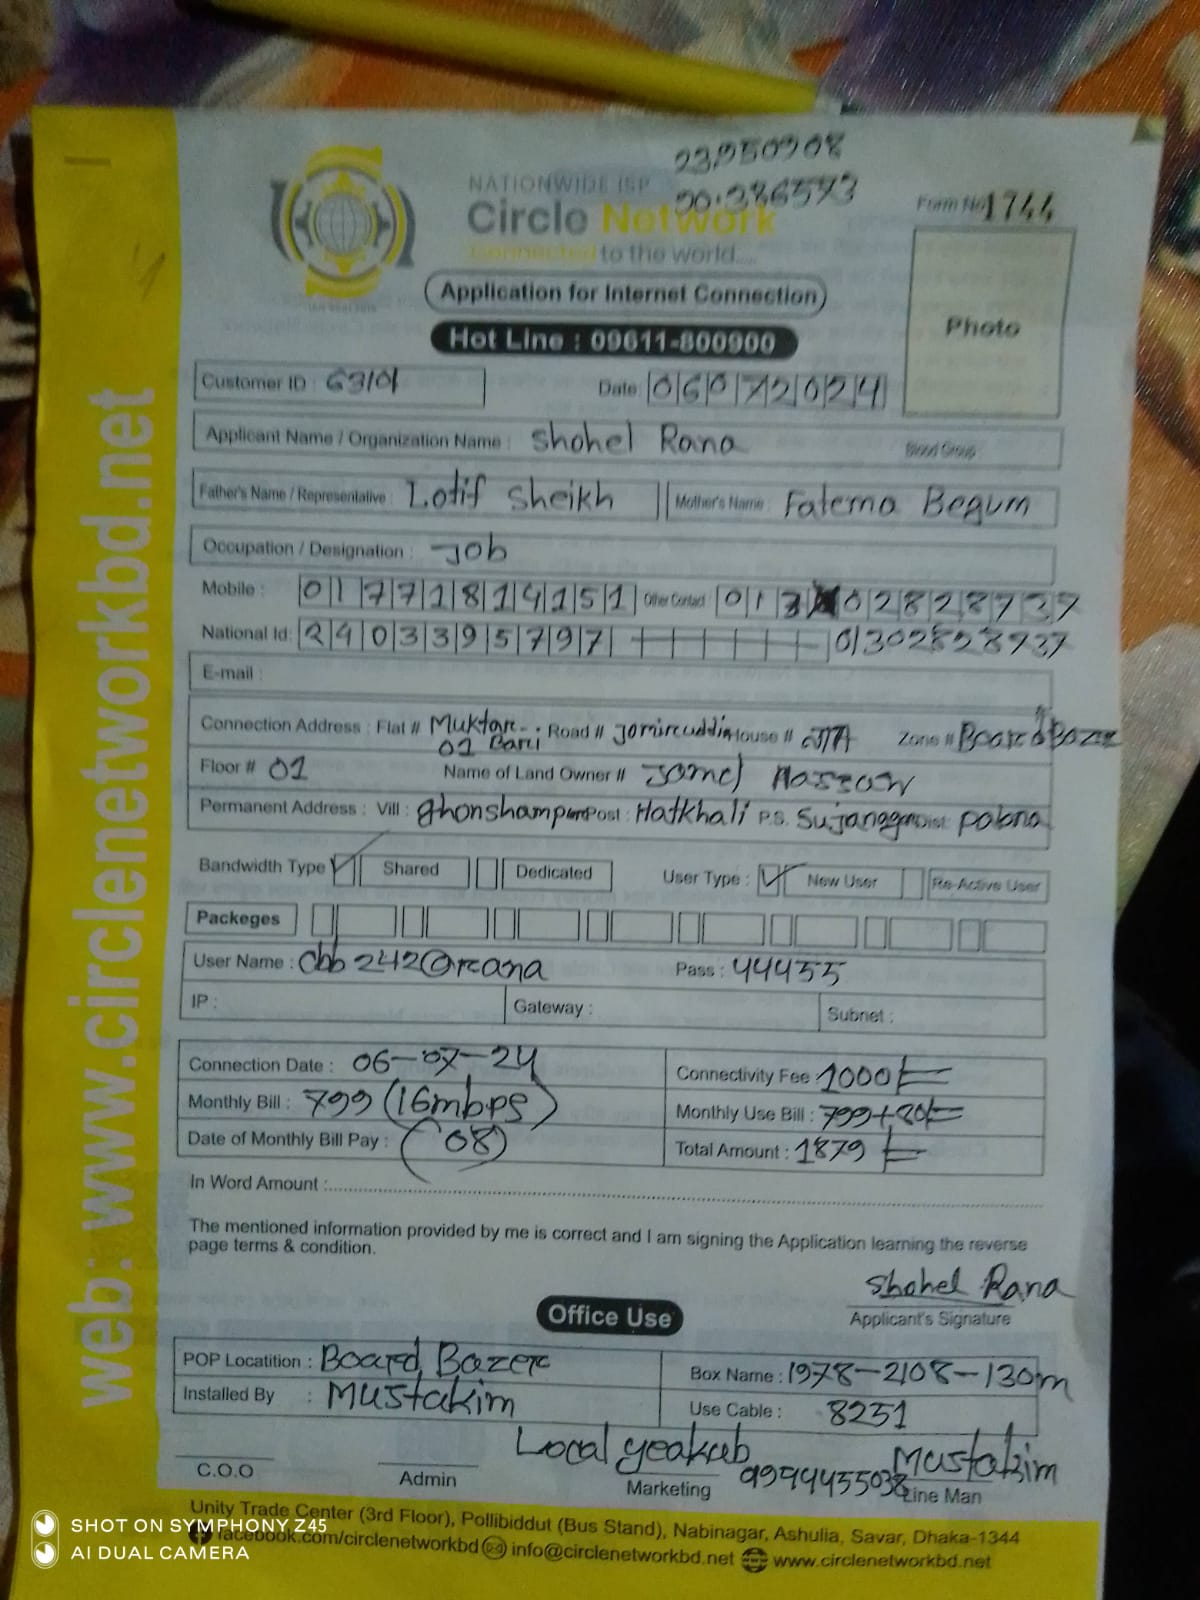 23.950908
90.286573
NATIONWIDE ISP
Circle Network
Connected to the world....
Form No 1744
Application for Internet Connection
Photo
Hot Line : 09611-800900
Customer ID : 63101
Date: 06072024
Applicant Name / Organization Name : Shohel Rana
Blood Group :
Father's Name / Representative : Lotif Sheikh Mother's Name : Fatema Begum
Occupation / Designation : Job
Mobile : 01771814151 Other Contact 013 02828737
National Id: 2403395797 01302828737
E-mail :
Connection Address : Flat # Muktar Road # Jomiruddin House # N/A Zone # Board Bazer
01 Bari
Floor # 01 Name of Land Owner # Hassan
Permanent Address : Vill : Ghonshampur Post : Hatkhali P.S. Sujanagar Dist: pabna
Bandwidth Type Shared Dedicated User Type : New User Re-Active User
Packeges
User Name : Cbb242@rana Pass : 44455
IP : Gateway : Subnet :
Connection Date : 06-07-24 Connectivity Fee : 1000/=
Monthly Bill : 799 (16mbps) Monthly Use Bill : 799+80/=
Date of Monthly Bill Pay : (08) Total Amount : 1879/=
In Word Amount :
The mentioned information provided by me is correct and I am signing the Application learning the reverse
page terms & condition.
Shohel Rana
Applicant's Signature
Office Use
POP Locatition : Board Bazer Box Name : 1978-2108-130m
Installed By : Mustakim Use Cable : 8251
Local yeakub Mustakim
C.O.O Admin Marketing Line Man
Unity Trade Center (3rd Floor), Pollibiddut (Bus Stand), Nabinagar, Ashulia, Savar, Dhaka-1344
facebook.com/circlenetworkbd info@circlenetworkbd.net www.circlenetworkbd.net
web: www.circlenetworkbd.net
SHOT ON SYMPHONY Z45
AI DUAL CAMERA